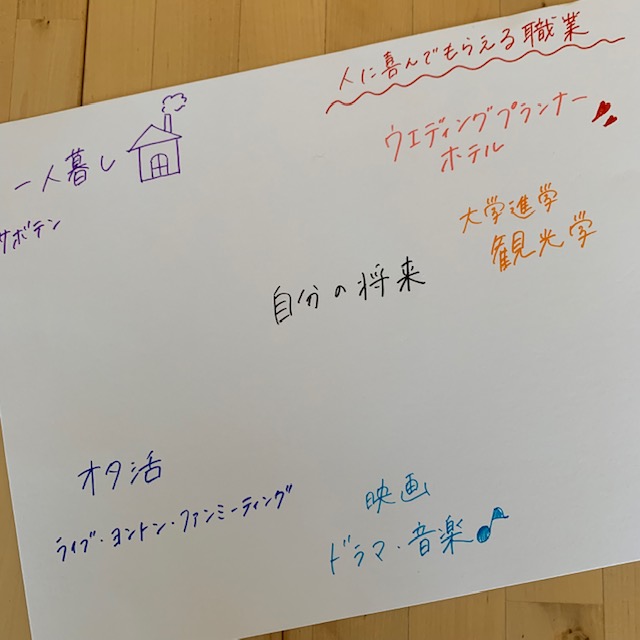 人に喜んでもらえる職業
ウエディングプランナー
ホテル
大学進学
観光学
一人暮し
サボテン
自分の将来
オタ活
ライブ・ヨントン・ファンミーティング
映画
ドラマ・音楽